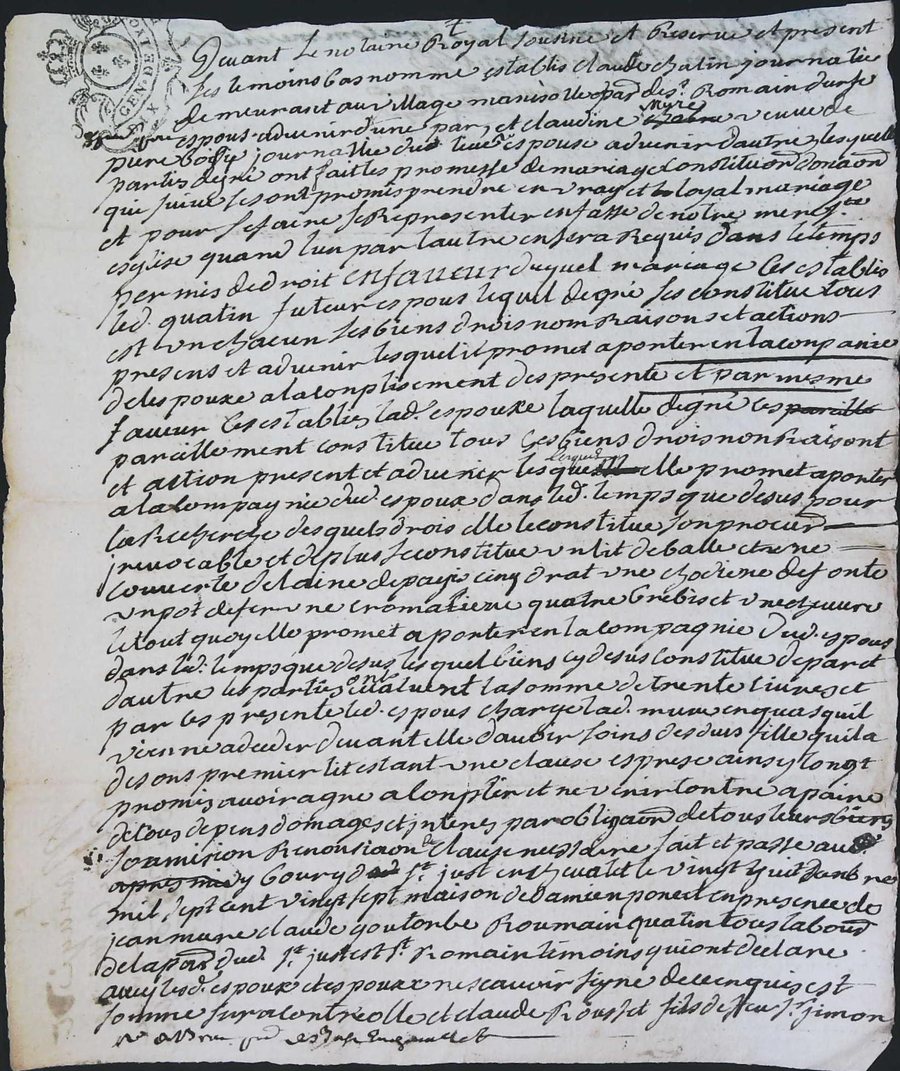 GEN. DE
DIX
+
Devant Le notaire Royal sousne et Reserve et present
Les temoins bas nomme establis claude chatin journalie
demeurasct au village manisolle par. de st. Romain durfe
espous advenir d'une par, et claudine myre veuve de
piere body journallie dud lieu espouse advenir d'autre, lesquelle
parties de gre ont fait les promesse de mariage constitution donaon
que suive se sont promis prendre en vray et loyal mariage
et pour se faire se Representer en fasse de notre mere ste
esglise quand lun par lautre en sera Requis dans le temps
permis de droit en faveur duquel mariage Ces establis
led. quatin futeur espous lequel de gre ses constitue tous
est un chacun ses biens drois nom Raisons et actions
presens et advenir lesquel il promet aporter en la conpanie
de lespouxe a la conplisement des presente et par mesme
faveur Ces establies lad. espouxe laquelle de gre ces
pareillement constitue tous ses biens drois non Raisont
et action present et advenir lesquelle elle promet aporter
a la Compagnie dud espoux dans led. temps que desus pour
la Recherche desquels drois elle le constitue son procur
jrevocable et de plus se constitue un lit de balle et une
Couverte de laine de pays cinq drat une chodiere de fonte
un pot de fer une cromaliere quatre brebis et une chevre
le tout quoy elle promet aporter en la compagnie dud. espous
dans led. temps que desus lesquel biens cy desus constitue de par et
d'autre les parties ont esvaluent la somme de trente livres et
par les presente led. espous charge lad. mure en quas quil
vienne a deceder devant elle d'avoir soins des deux fille quil a
de sons premier lit estant une clause esprese ainsy long
promis avoir agre a conplir et ne venir contre a paine
de tous depens domages et interes par obligaon de tous leurs biens
soumision Renonsiaon de clause nessaire fait et passe au
bourg de st. just en chevalet le vingt huit
mil sept cent vingt sept maison de Damien poncet en presence de
jean mure claude goutonbe Roumain quatin tous labour
de la par dud. st. just et st. Romain temoins qui ont declare
avey lesd. espoux et espouxe ne scavoir signe de ce enquis est
somme sera contreolle et claude Roust et fils de feu sr. simon